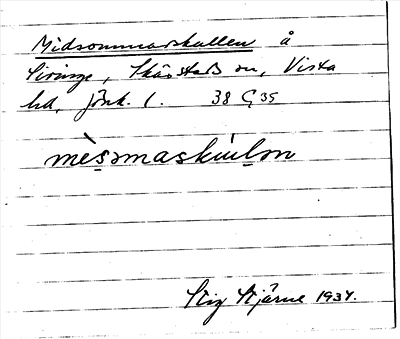 Midsommarskullen å
Siringe, Skärstads sn, Vista
hd, Jönk. l. 38 G 35
mèsmaskúlən
Stig Stjärne 1937.